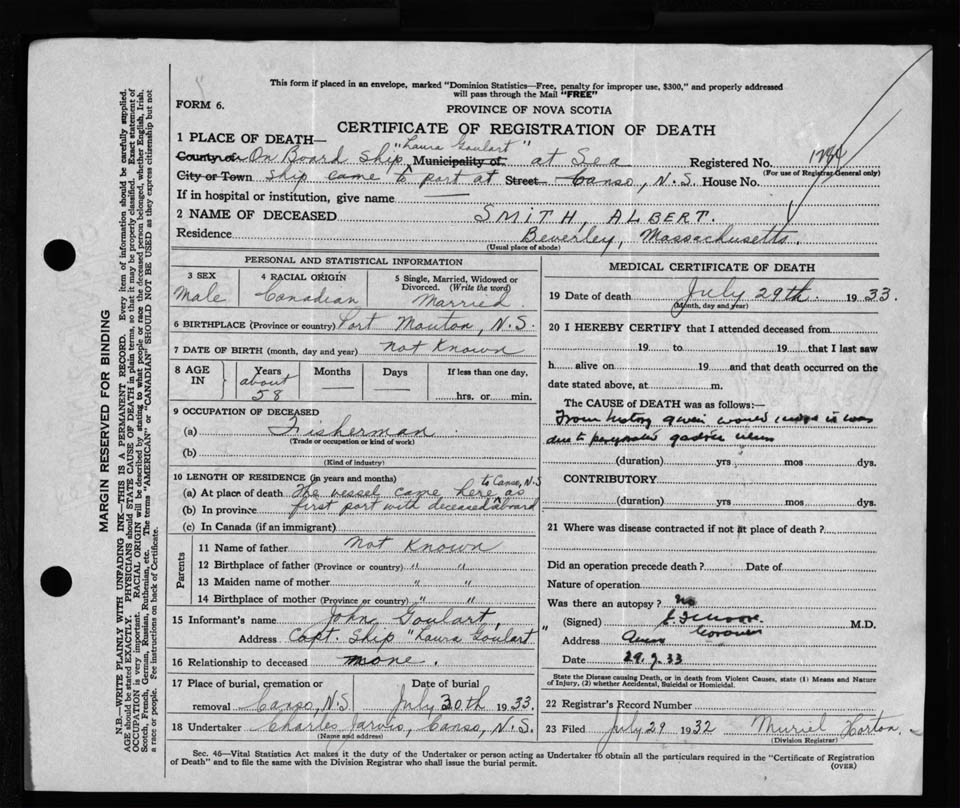 This form if placed in an envelope, marked "Dominion Statistics—Free, penalty for improper use, $300," and properly addressed
will pass through the Mail "FREE"
FORM 6.
PROVINCE OF NOVA SCOTIA
CERTIFICATE OF REGISTRATION OF DEATH
1 PLACE OF DEATH—
"Laura Goulart"
County of On Board Ship, Municipality of at Sea Registered No.
(For use of Registrar General only)
City or Town Ship came to port at Street Canso, N.S. House No.
If in hospital or institution, give name —
2 NAME OF DECEASED SMITH, ALBERT.
Residence Beverley, Massachusetts.
(Usual place of abode)
PERSONAL AND STATISTICAL INFORMATION
3 SEX
Male
4 RACIAL ORIGIN
Canadian
5 Single, Married, Widowed or
Divorced. (Write the word)
Married
6 BIRTHPLACE (Province or country) Port Mouton, N.S.
7 DATE OF BIRTH (month, day and year) Not Known
8 AGE IN
Years
about
58
Months
—
Days
—
If less than one day,
hrs. or min.
9 OCCUPATION OF DECEASED
(a) Fisherman
(Trade or occupation or kind of work)
(b)
(Kind of industry)
10 LENGTH OF RESIDENCE (in years and months)
to Canso, N.S
(a) At place of death The vessel came here as
(b) In province first port with deceased aboard
(c) In Canada (if an immigrant)
Parents
11 Name of father Not Known
12 Birthplace of father (Province or country) " "
13 Maiden name of mother " "
14 Birthplace of mother (Province or country) " "
15 Informant's name John Goulart,
Address Capt. Ship "Laura Goulart"
16 Relationship to deceased none.
17 Place of burial, cremation or
removal Canso, N.S.
Date of burial
July 30th 1933.
18 Undertaker Charles Jarvis, Canso, N.S.
(Name and address)
MEDICAL CERTIFICATE OF DEATH
19 Date of death July 29th. 1933.
(Month, day and year)
20 I HEREBY CERTIFY that I attended deceased from
19 to 19 that I last saw
h alive on 19 and that death occurred on the
date stated above, at m.
The CAUSE OF DEATH was as follows:—
From history given would judge it was
due to perforated gastric ulcer
(duration) yrs mos dys.
CONTRIBUTORY
(duration) yrs mos dys.
21 Where was disease contracted if not at place of death?
Did an operation precede death? Date of
Nature of operation
Was there an autopsy? No
(Signed) Moore. M.D.
Coroner
Address
Date 29.7.33
State the Disease causing Death, or in death from Violent Causes, state (1) Means and Nature
of Injury, (2) whether Accidental, Suicidal or Homicidal.
22 Registrar's Record Number
23 Filed July 29 1932 Muriel Horton
(Division Registrar)
Sec. 46—Vital Statistics Act makes it the duty of the Undertaker or person acting as Undertaker to obtain all the particulars required in the "Certificate of Registration
of Death" and to file the same with the Division Registrar who shall issue the burial permit.
(OVER)
MARGIN RESERVED FOR BINDING
N.B.—WRITE PLAINLY WITH UNFADING INK—THIS IS A PERMANENT RECORD. Every item of information should be carefully supplied.
AGE should be stated EXACTLY. PHYSICIANS should STATE CAUSE OF DEATH in plain terms, so that it may be properly classified. Exact statement of
OCCUPATION is very important. RACIAL ORIGIN will be described by stating to what people or race the deceased person belonged, whether English, Irish,
Scotch, French, German, Russian, Ruthenian, etc. The terms "AMERICAN" or "CANADIAN" SHOULD NOT BE USED as they express citizenship but not
a race or people. See instructions on back of Certificate.